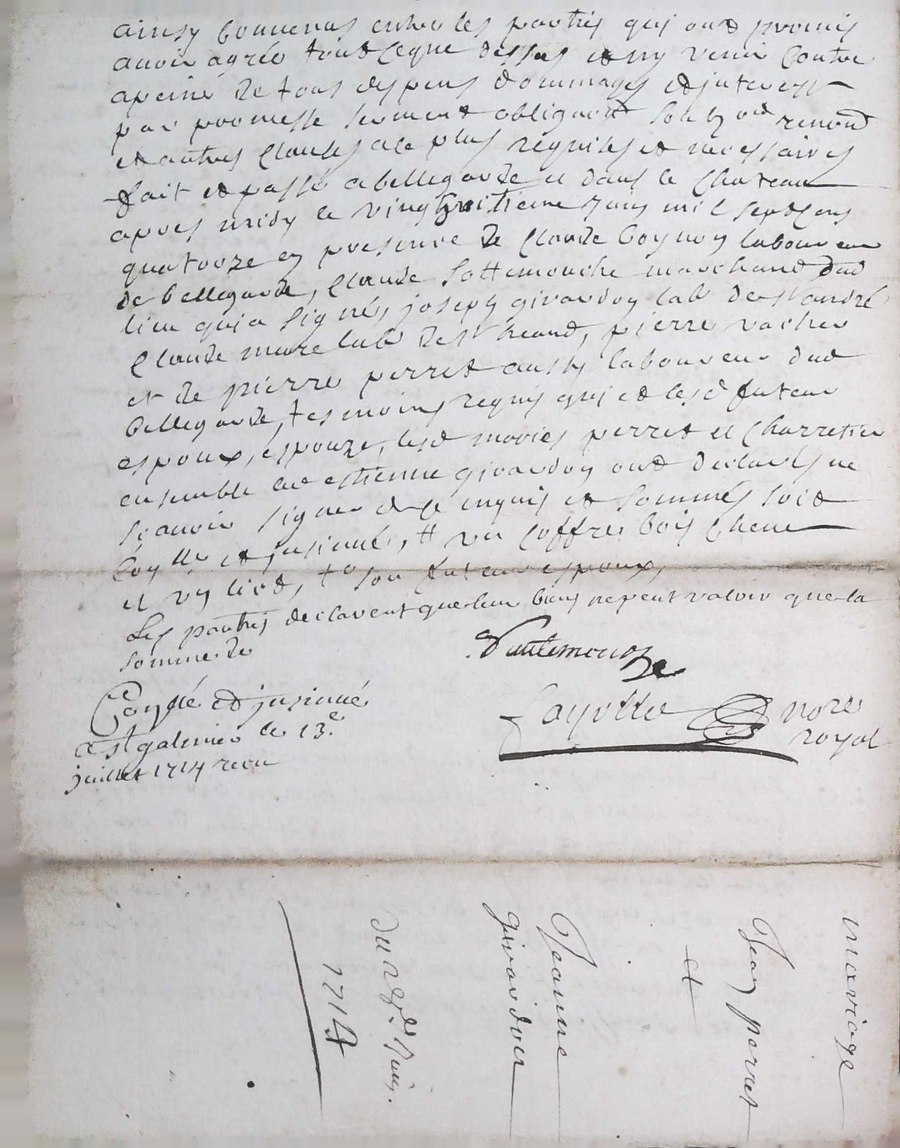 ainsy convenus entre les parties qui ont promis
avoir agréé tout ceque dessus et ny venir contre
apeine de tous despens dommages et interest
par promesse serment obligeant renond
et autres clauses ale plus requises et necessaires
fait et passé abellegarde et dans le chateau
apres midy le vingthuitieme juin mil sept cens
quatorze en presence de Claude laboureur
de bellegarde, Claude Sottemouche marchand dud
lieu qui a signés, joseph girardon lab de st andré
Claude mure lab de st heand, pierre vacher
et de pierre perret aussy laboureur dud
bellegarde, tesmoins requis qui et lesd futeur
espoux, espouze, lesd mariés perret et Charretier
ensemble led estienne girardon ont declarés ne
scavoir signer de ce enquis et sommés soit
et insinué, # un coffre bois chene
et son futeur espoux,
Les parties declarent que leur bien ne peut valoir que la
somme de
Santemouche
nore
royal
et insinué
a st galmier le 13e
juillet 1714 receu
mariage
Jean perret
et
Jeanne
girardon
du 28e Juin.
1714